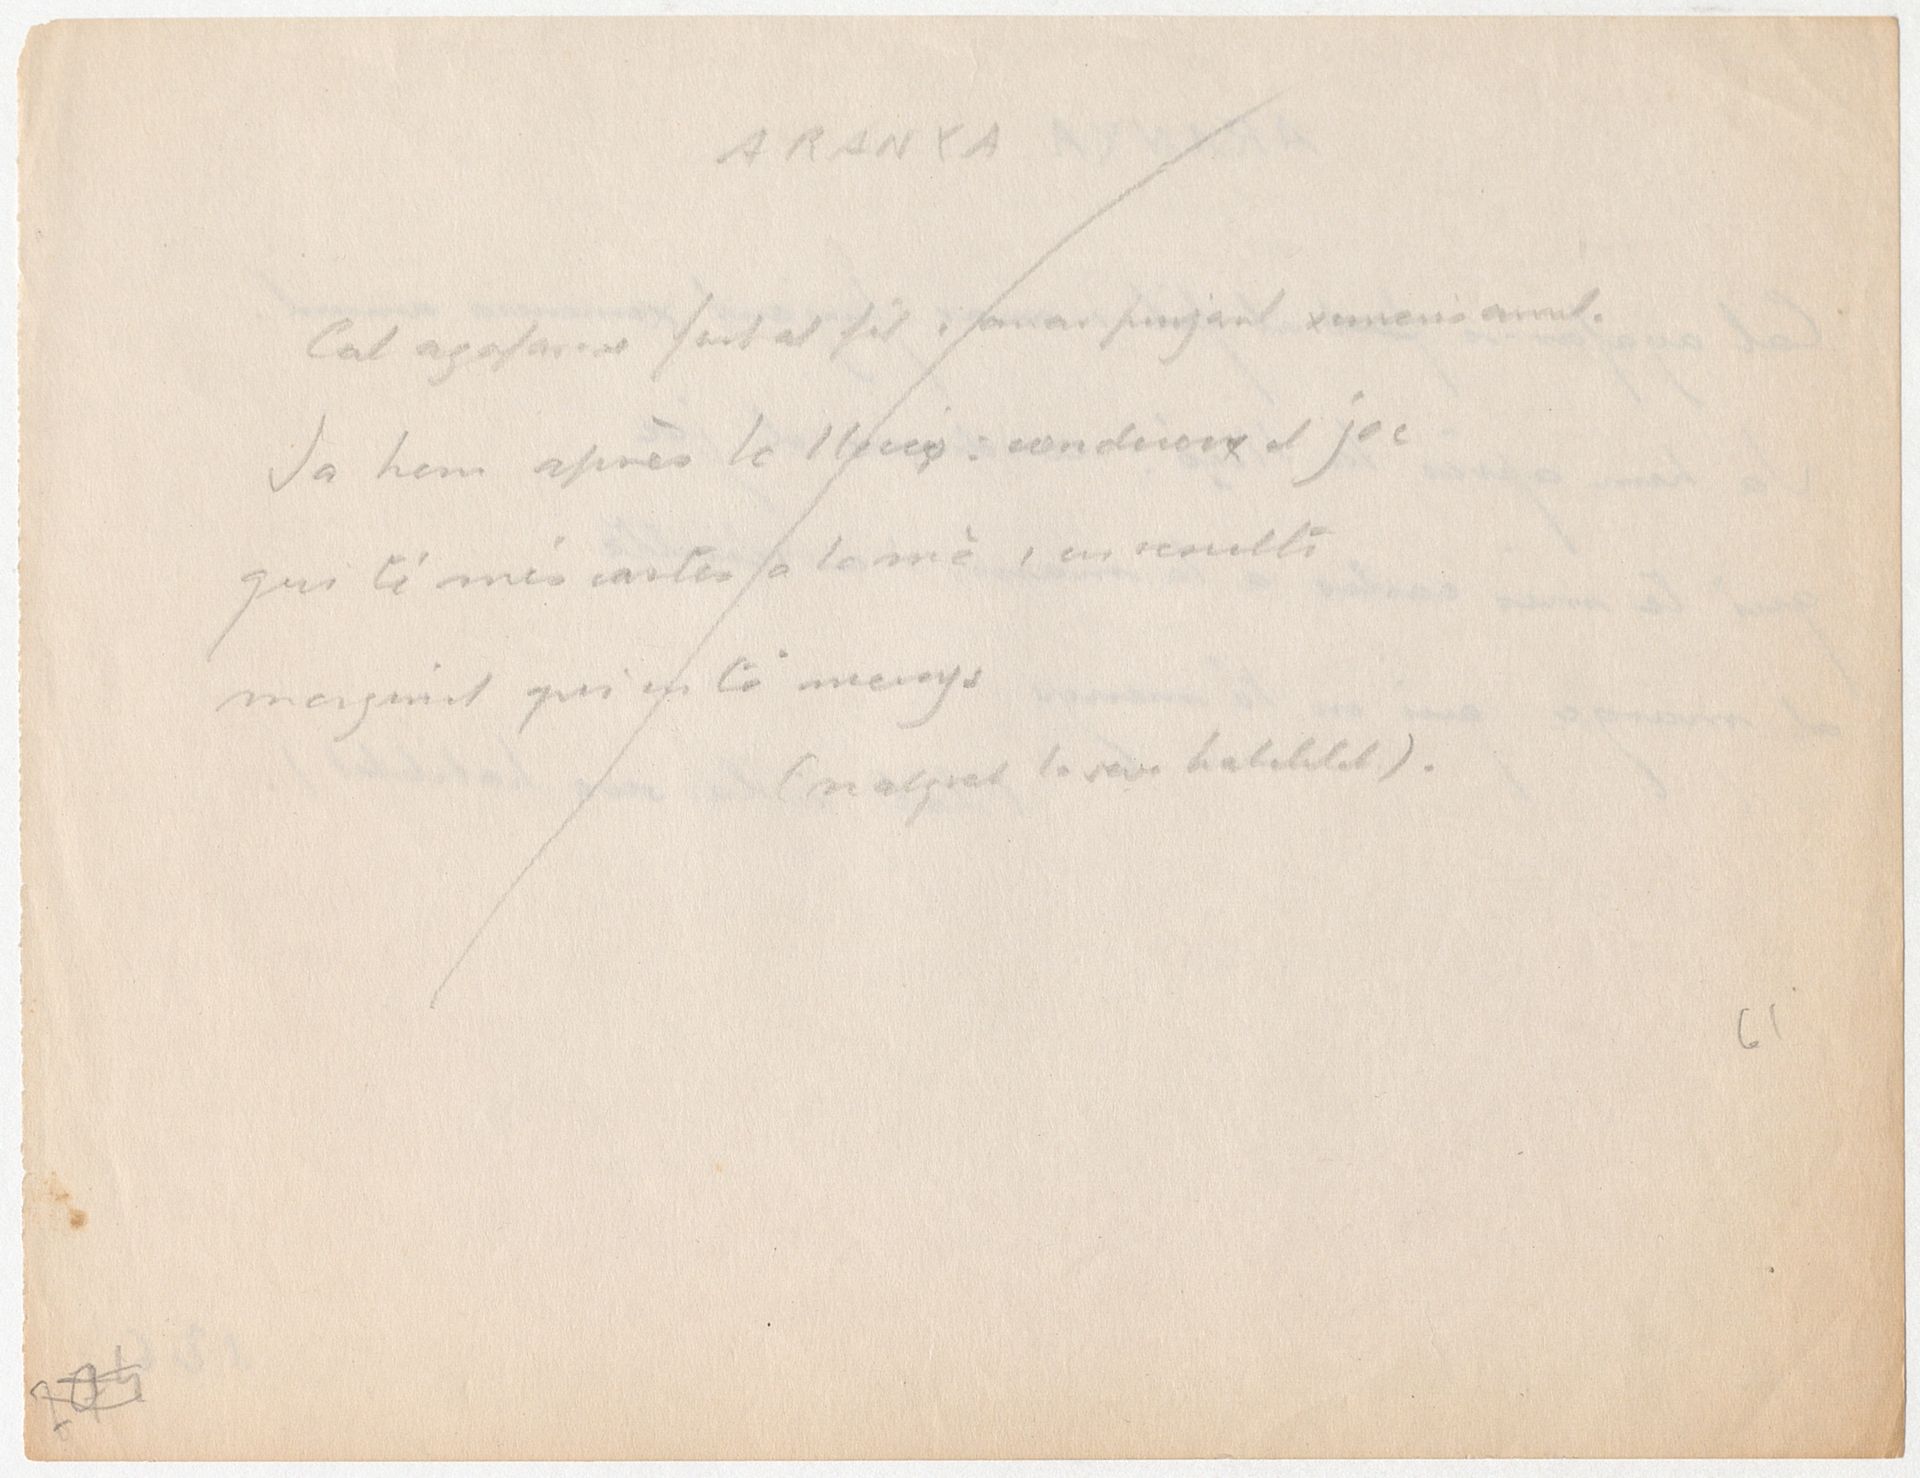 ARANYA
Cal agafar-se fort al fil i anar pujant xino-xano amunt.
Ja hem après la lliçó: condueix el joc
qui té més cartes a la mà i en resulta
marginat qui en té menys
(malgrat la seva habilitat).
61